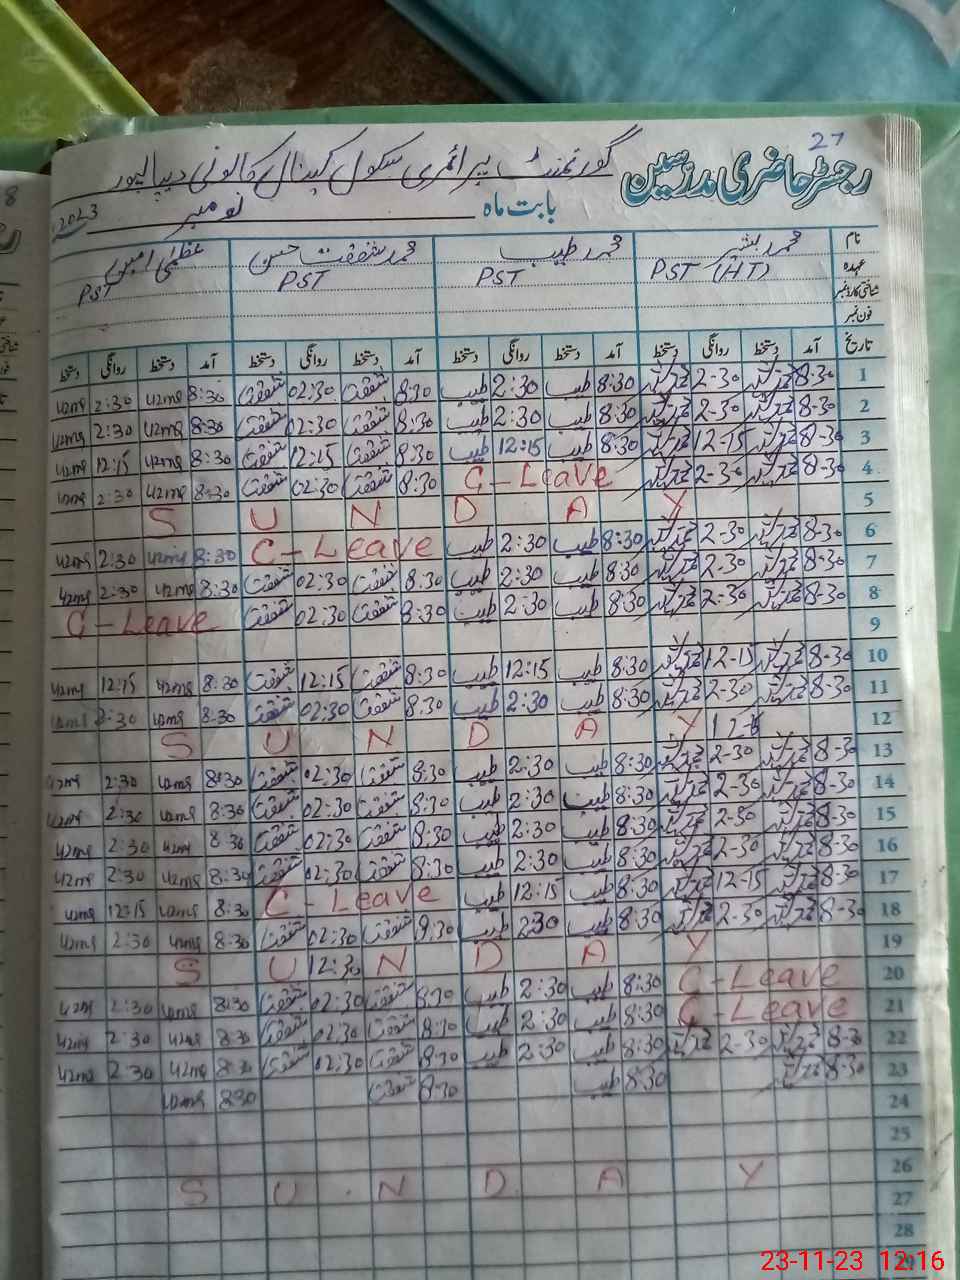 27
رجسٹر حاضری مدرسین گورنمنٹ پرائمری سکول کینال کالونی دیپالپور
بابت ماہ نومبر 2023
نام محمد راشد محمد طیب محمد شفقت حسین عظمیٰ امین
عہدہ PST (HT) PST PST PST
شناختی کارڈ نمبر
فون نمبر
تاریخ آمد دستخط روانگی دستخط آمد دستخط روانگی دستخط آمد دستخط روانگی دستخط آمد دستخط روانگی دستخط
1 8-30 2-30 8:30 طیب 2:30 طیب 8:30 شفقت 02:30 شفقت 8:30 uzma 2:30 uzma
2 8-30 2-30 8:30 طیب 2:30 طیب 8:30 شفقت 02:30 شفقت 8:30 uzma 2:30 uzma
3 8-30 12-15 8:30 طیب 12:15 طیب 8:30 شفقت 12:15 شفقت 8:30 uzma 12:15 uzma
4 8-30 2-30 C-Leave 8:30 شفقت 02:30 شفقت 8:30 uzma 2:30 uzma
5 S U N D A Y
6 8-30 2-30 8:30 طیب 2:30 طیب C-Leave 8:30 uzma 2:30 uzma
7 8-30 2-30 8:30 طیب 2:30 طیب 8:30 شفقت 02:30 شفقت 8:30 uzma 2:30 uzma
8 8-30 2-30 8:30 طیب 2:30 طیب 8:30 شفقت 02:30 شفقت C-Leave
9
10 8-30 12-15 8:30 طیب 12:15 طیب 8:30 شفقت 12:15 شفقت 8:30 uzma 12:15 uzma
11 8-30 2-30 8:30 طیب 2:30 طیب 8:30 شفقت 02:30 شفقت 8:30 uzma 2:30 uzma
12 S U N D A Y
13 8-30 2-30 8:30 طیب 2:30 طیب 8:30 شفقت 02:30 شفقت 8:30 uzma 2:30 uzma
14 8-30 2-30 8:30 طیب 2:30 طیب 8:30 شفقت 02:30 شفقت 8:30 uzma 2:30 uzma
15 8-30 2-30 8:30 طیب 2:30 طیب 8:30 شفقت 02:30 شفقت 8:30 uzma 2:30 uzma
16 8-30 2-30 8:30 طیب 2:30 طیب 8:30 شفقت 02:30 شفقت 8:30 uzma 2:30 uzma
17 8-30 12-15 8:30 طیب 12:15 طیب C-Leave 8:30 uzma 12:15 uzma
18 8-30 2-30 8:30 طیب 2:30 طیب 8:30 شفقت 02:30 شفقت 8:30 uzma 2:30 uzma
19 S U 12:30 N D A Y
20 C-Leave 8:30 طیب 2:30 طیب 8:30 شفقت 02:30 شفقت 8:30 uzma 2:30 uzma
21 C-Leave 8:30 طیب 2:30 طیب 8:30 شفقت 02:30 شفقت 8:30 uzma 2:30 uzma
22 8-30 2-30 8:30 طیب 2:30 طیب 8:30 شفقت 02:30 شفقت 8:30 uzma 2:30 uzma
23 8-30 8:30 طیب 8:30 شفقت 8:30 uzma
24
25
26 S U N D A Y
27
28
29
23-11-23 12:16